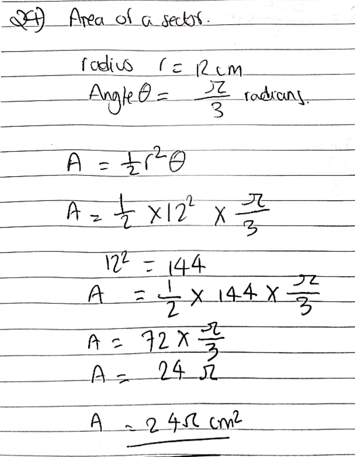 Q4) Area of a sector.
radius r = 12 cm
Angle θ = π/3 radians.
A = 1/2 r² θ
A = 1/2 × 12² × π/3
12² = 144
A = 1/2 × 144 × π/3
A = 72 × π/3
A = 24 π
A = 24π cm²